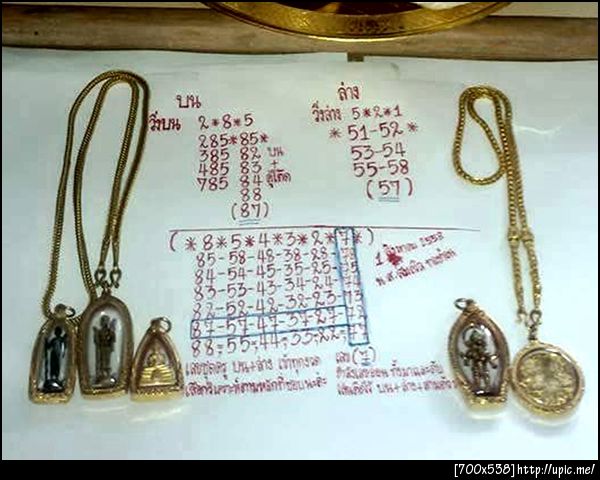 บน
วิ่งบน 2*8*5
285*85*
385 82 บน
485 83 +
785 84 คู่โต๊ด
88
(87)
ล่าง
วิ่งล่าง 5*2*1
*51-52*
53-54
55-58
(57)
(*8*5*4*3*2*7*)
85-58-48-38-28-78
84-54-45-35-25-75
83-53-43-34-24-74
82-52-42-32-23-73
87-57-47-37-27-77
88,55,44,33,22,77
1 สิงหาคม 2558
เลขชุดครู บน+ล่าง เข้าทุกงวด
เลข (7)
บน+ล่าง+สาม
[700x538]http://upic.me/